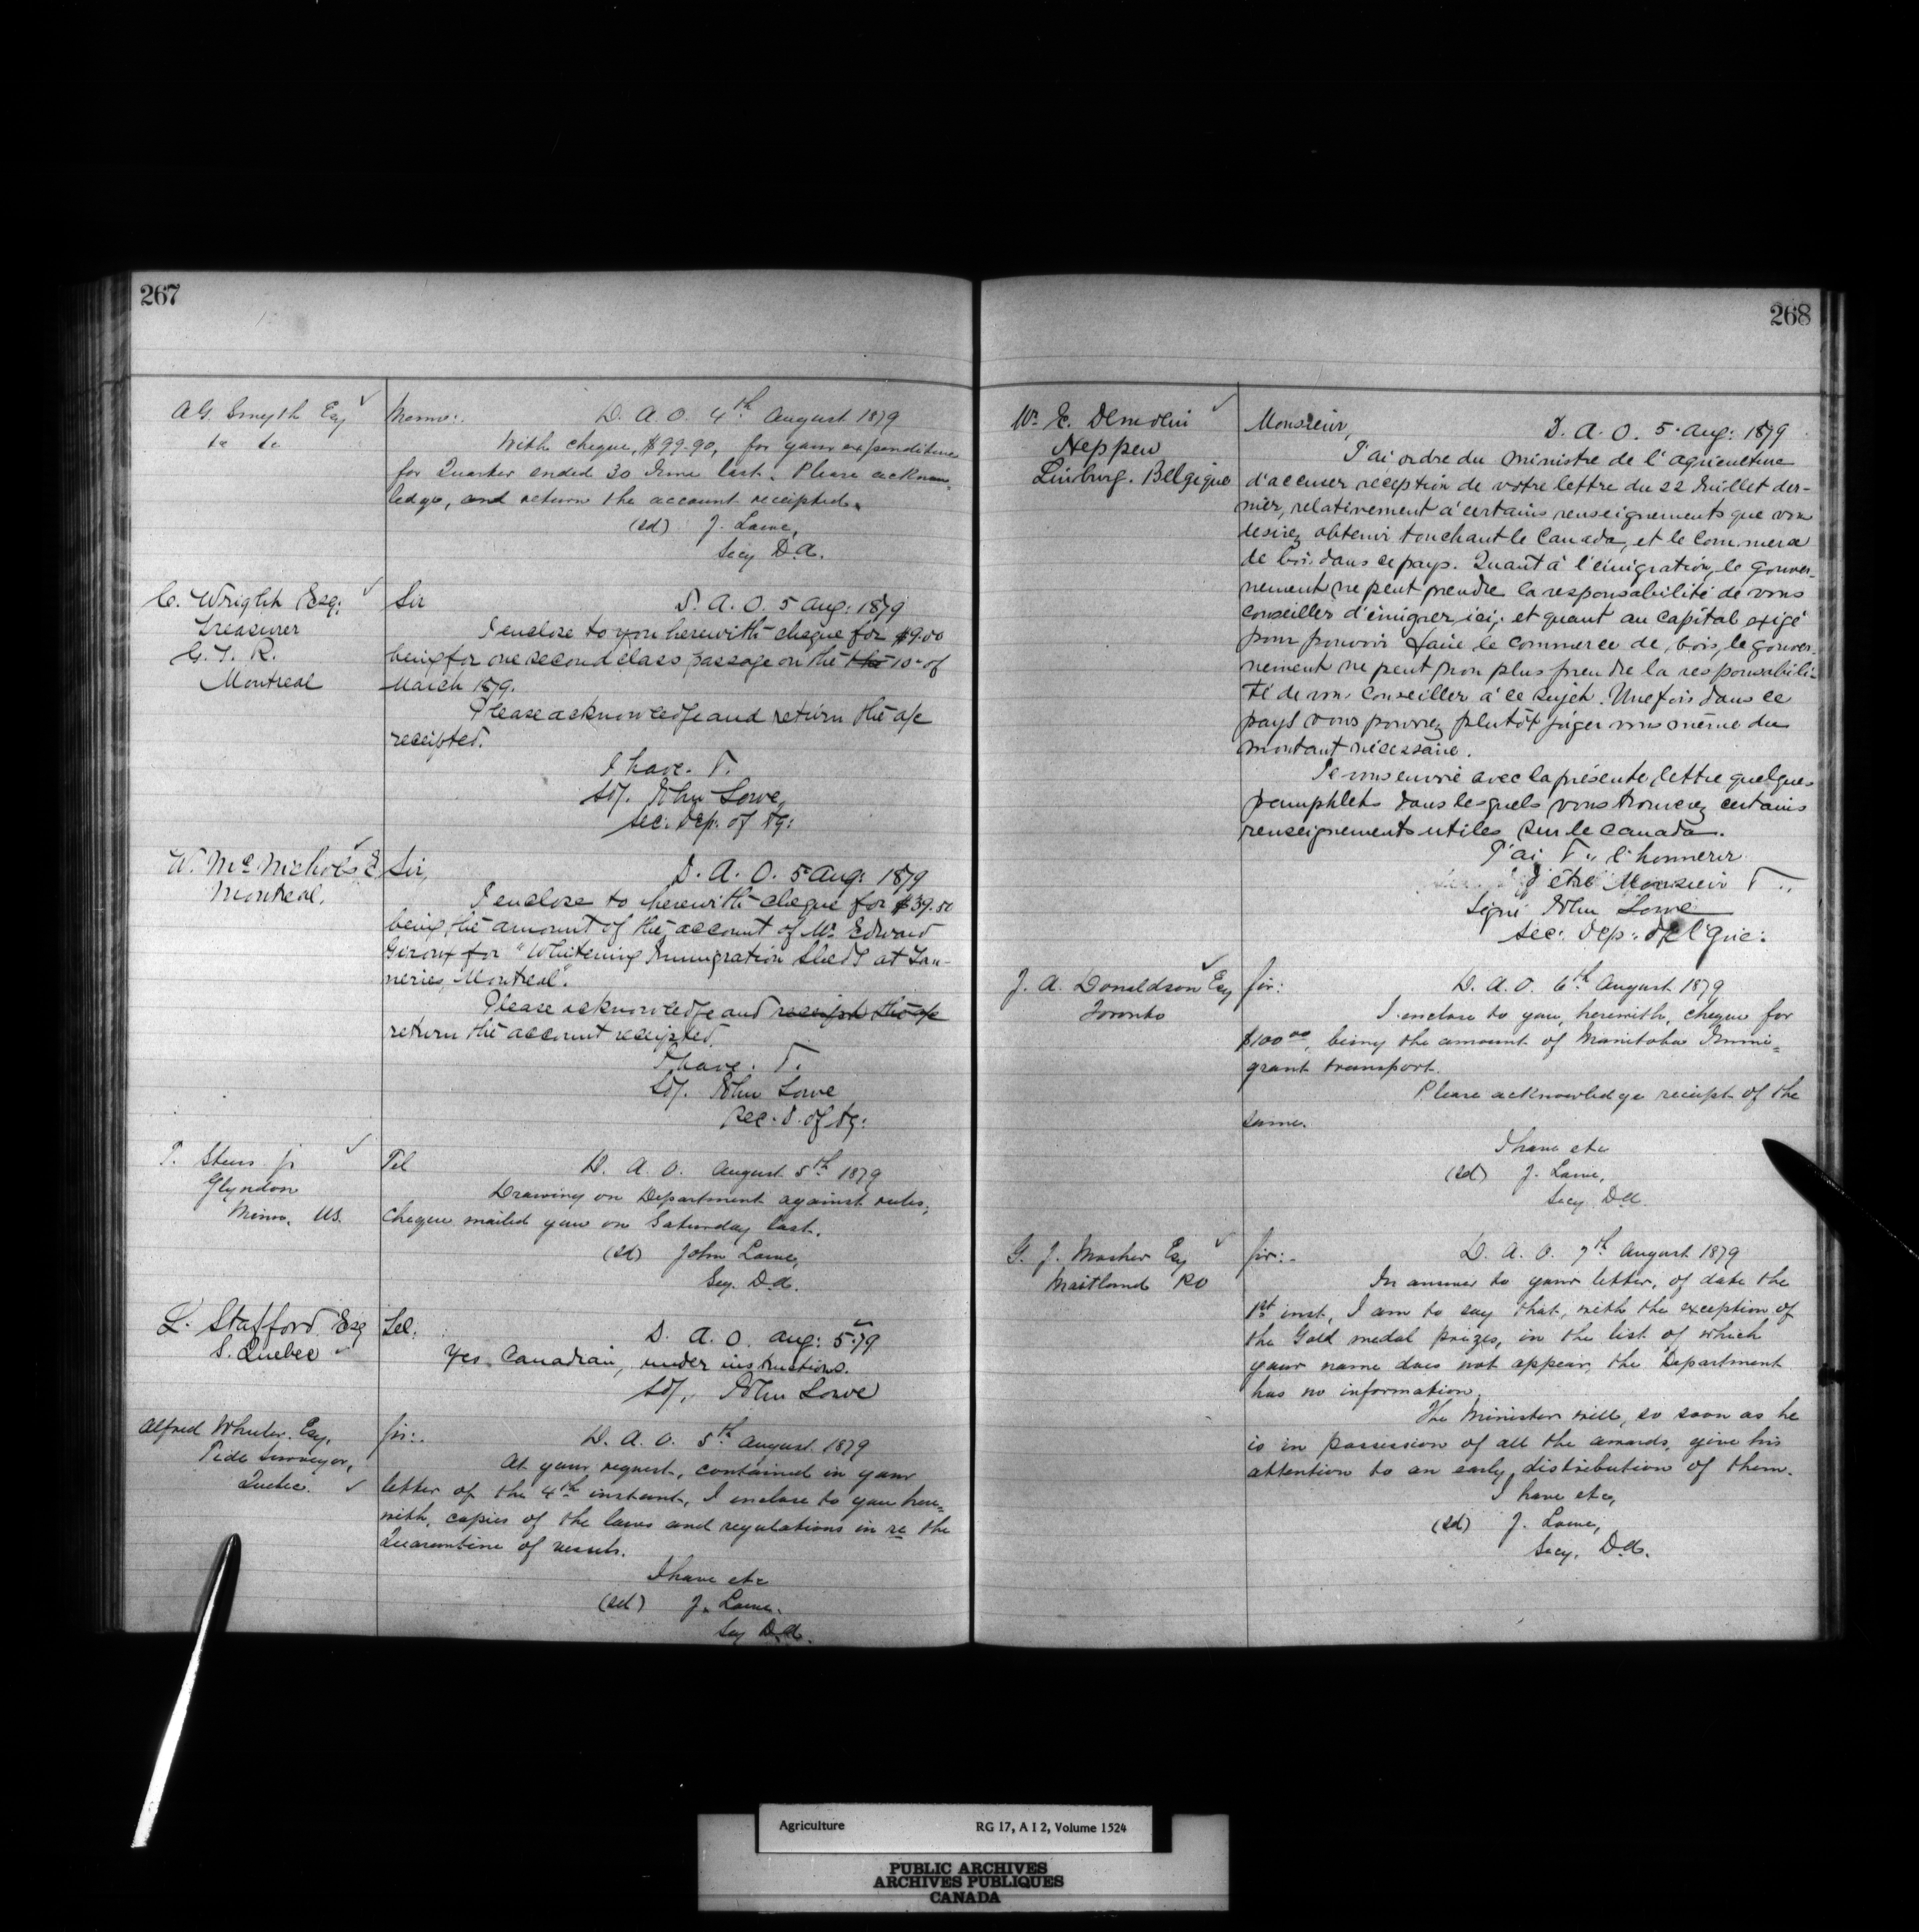 267
A G. Smyth Esq
Memo:. D. A. O. 4th August 1879
With cheque, $99.90, for your expenditure
for Quarter ended 30 June last. Please acknow-
ledge, and return the account receipted.
(sd) J. Lowe,
Secy D.A.
C. Wright Esq:
Treasurer
G. T. R.
Montreal
Sir D. A. O. 5 Aug: 1879
I enclose to you herewith cheque for $9.00
being for one second class passage on the the 10 of
March 1879.
Please acknowledge and return the a/c
receipted.
I have.
Sd/. John Lowe,
Sec. Dep. of Ag:
W. Mc Nichols E
Montreal.
Sir, D. A. O. 5 Aug: 1879
I enclose to herewith cheque for $39.50
being the amount of the account of Mr. Edward
Giroux for "Whitening Immigration Sheds at Tan-
neries, Montreal".
Please acknowledge and receipt the a/c
return the account receipted.
I have.
Sd/. John Lowe
Sec. D. of Ag:
Glyndon
Minn. US.
Tel D. A. O. August 5th 1879
Drawing on Department against rules,
cheque mailed you on Saturday last.
(sd) John Lowe,
Secy. D.A.
L. Stafford Esq
S. Quebec
Tel. D. A. O. Aug: 5.79
Yes, Canadian, under instructions.
Sd/. John Lowe
Alfred Wheeler Esq.
Tide Surveyor,
Quebec.
Sir:. D. A. O. 5th August 1879
At your request, contained in your
letter of the 4th instant, I enclose to you here-
with, copies of the laws and regulations in re the
Quarantine of vessels.
I have etc
(sd) J. Lowe.
Secy D.A.
268
Neppen
Limburg. Belgique
Monsieur, D. A. O. 5 Aug: 1879
J'ai ordre du ministre de l'agriculture
d'accuser reception de votre lettre du 22 Juillet der-
nier, relativement à certains renseignements que vous
desirez obtenir touchant le Canada, et le commerce
de bois dans ce pays. Quant à l'émigration, le gouver-
nement ne peut prendre la responsabilité de vous
conseiller d'émigrer ici, et quant au capital exigé
pour pouvoir faire le commerce de bois, le gouver-
nement ne peut non plus prendre la responsabili-
té de vous conseiller à ce sujet. Une fois dans ce
pays vous pourrez plutôt juger vous même du
montant nécessaire.
Je vous envoie avec la présente lettre quelques
pamphlets dans lesquels vous trouverez certains
renseignements utiles sur le Canada.
J'ai l'honneur
d'être Monsieur
Signé John Lowe
Sec: Dep: de l'Agric:
J. A. Donaldson Esq
Toronto
Sir: D. A. O. 6th August 1879
I enclose to you, herewith, cheque for
$100.00, being the amount of Manitoba Immi-
grant transport.
Please acknowledge receipt of the
same.
I have etc
(sd) J. Lowe,
Secy D.A.
G. J. Mosher Esq
Maitland
Sir:- D. A. O. 7th August 1879
In answer to your letter, of date the
1st inst, I am to say that, with the exception of
the Gold medal prizes, in the list of which
your name does not appear, the Department
has no information.
The Minister will, so soon as he
is in possession of all the awards, give his
attention to an early distribution of them.
I have etc,
(sd) J. Lowe,
Secy. D.A.
Agriculture RG 17, A I 2, Volume 1524
PUBLIC ARCHIVES
ARCHIVES PUBLIQUES
CANADA